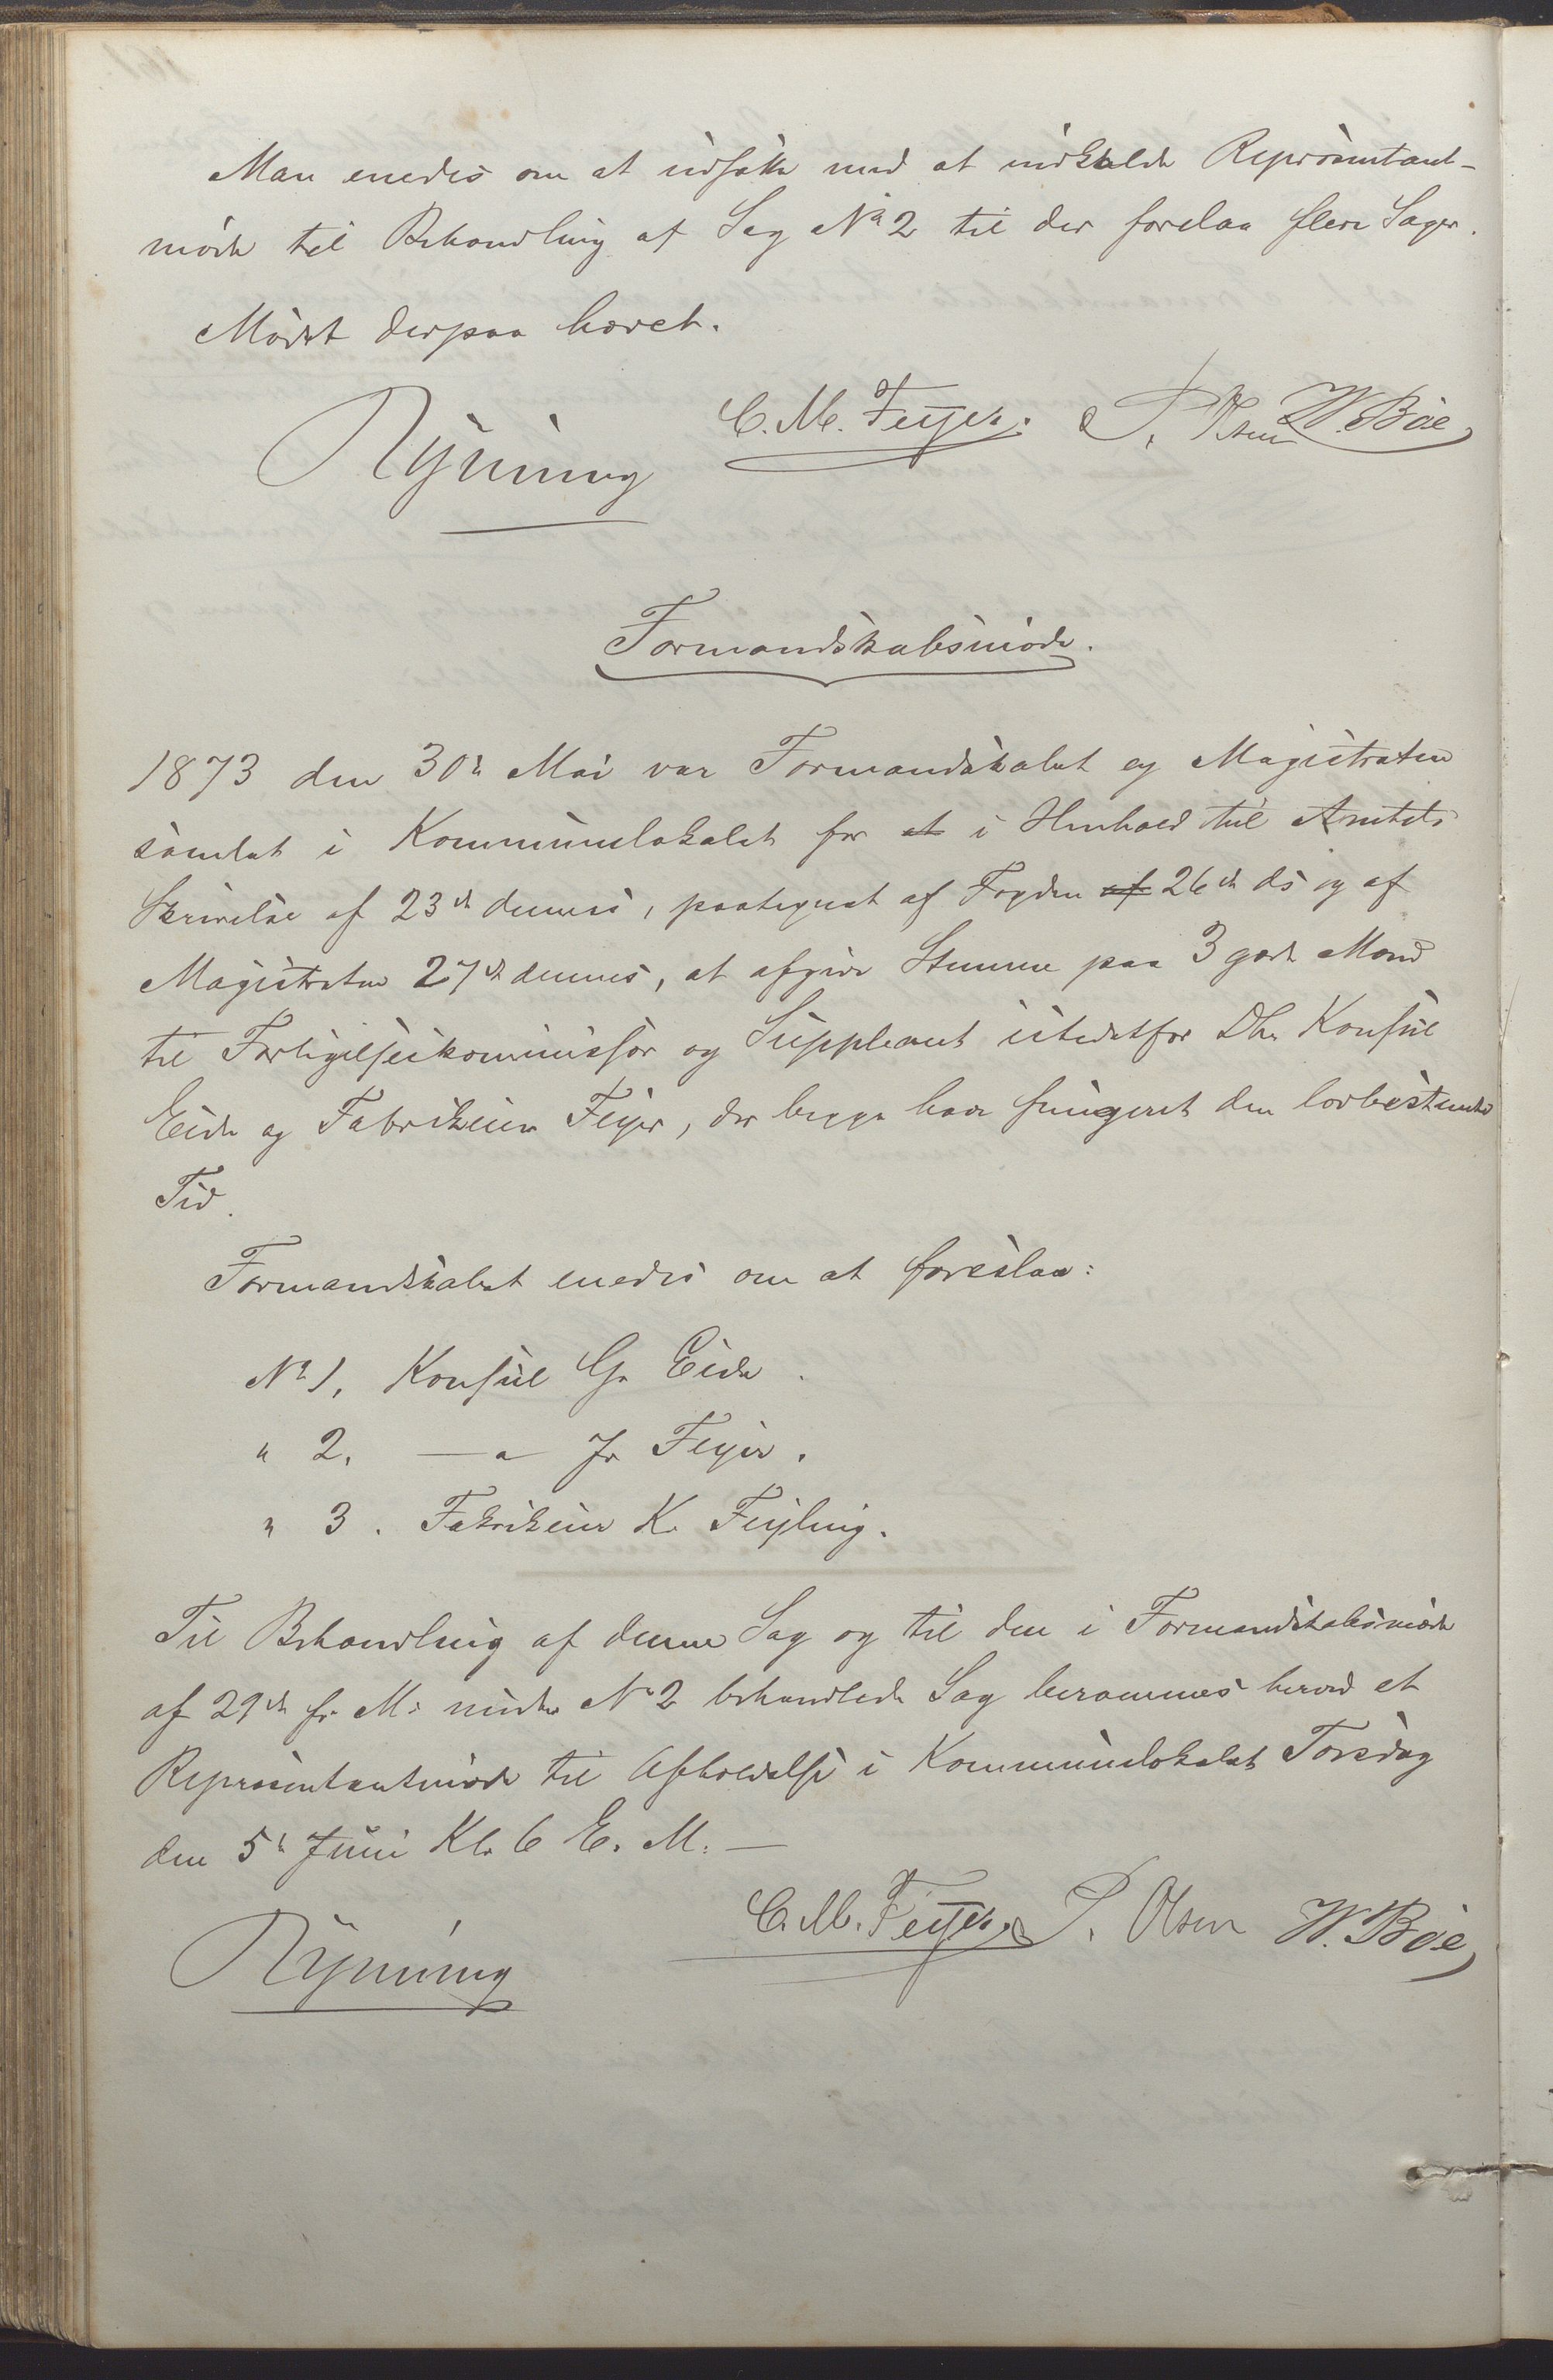 Man enedes om at udsætte med at indkalde Repræsentant-
møde til Behandling af Sag No 2 til der forelaa flere Sager.
Mødet derpaa hævet.
C. M. Feyer. P. Olsen W. Bøe
Rynning
Formandskabsmøde.
1873 den 30te Mai var Formandskabet og Magistraten
samlet i Kommunelokalet for at i Henhold til Amtets
Skrivelse af 23de dennes, paategnet af Fogden af 26de ds og af
Magistraten 27de dennes, at afgive Stemme paa 3 gode Mænd
til Forligelseskommissær og Suppleant istedetfor DHr Konsul
Eide og Fabrikeier Feyer, der begge have fungeret den lovbestemte
Tid.
Formandskabet enedes om at foreslaa:
No 1, Konsul G. Eide.
" 2. — " — Jr Feyer.
" 3. Fabrikeier K. Feyling.
Til Behandling af denne Sag og til den i Formandskabsmøde
af 29de fr. M. under No 2 behandlede Sag berammes herved et
Repræsentantmøde til Afholdelse i Kommunelokalet Torsdag
den 5te Juni Kl. 6 E. M. —
C. M. Feyer. P. Olsen W. Bøe
Rynning